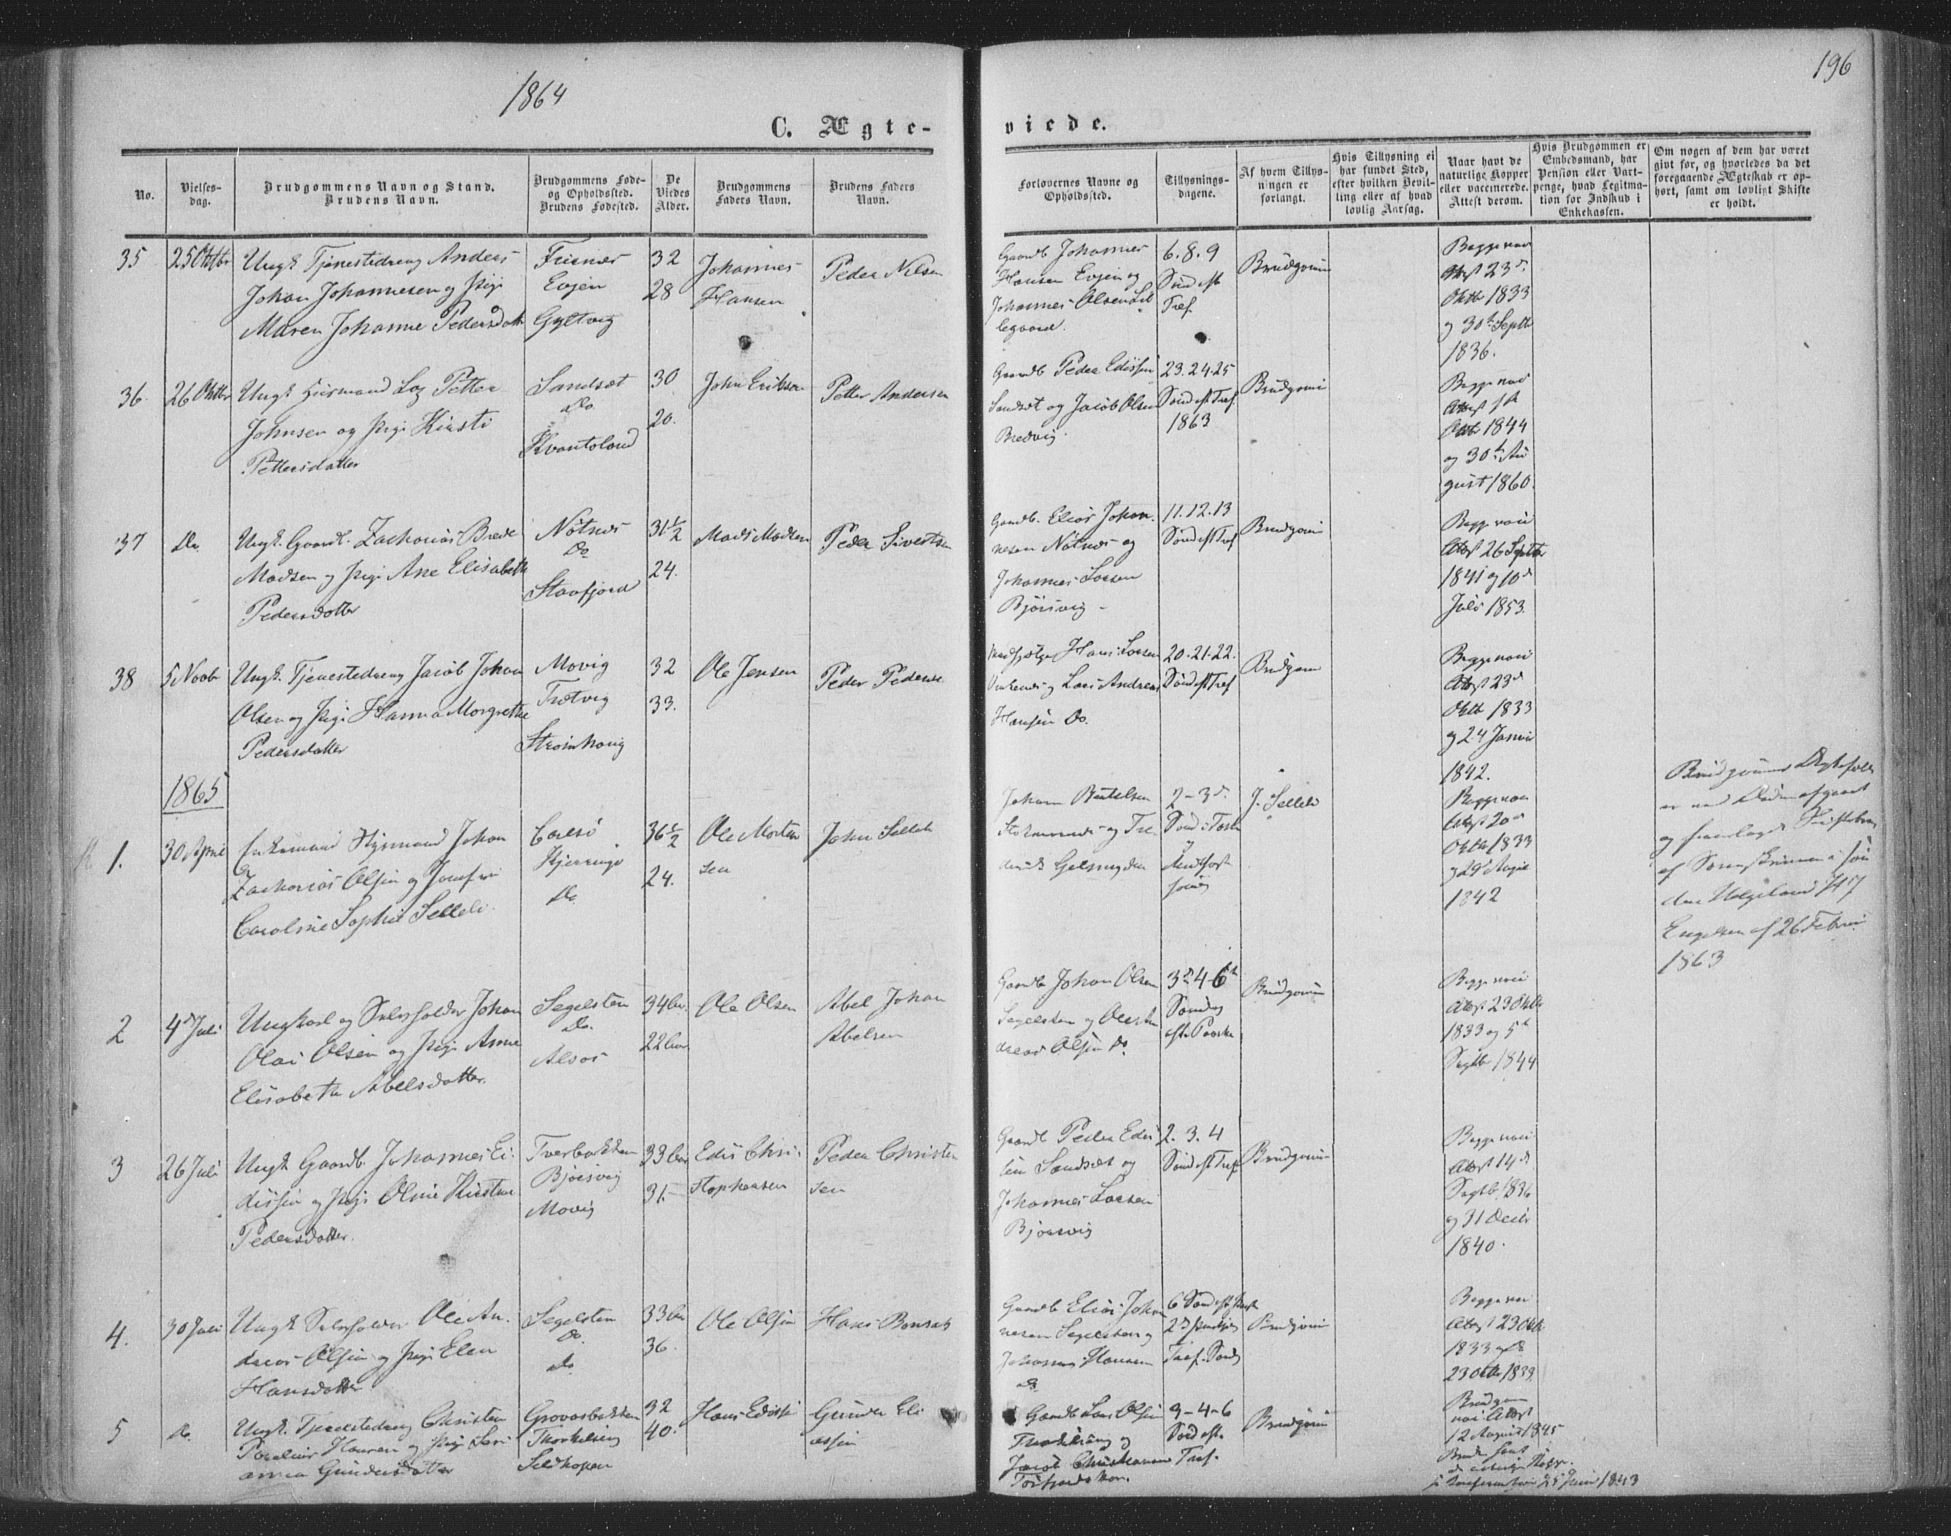 1864
196
C. Ægte-
viede.
No.
Vielses-
dag.
Brudgommens Navn og Stand.
Brudens Navn.
Brudgommens Føde-
og Opholdssted.
Brudens Fødested.
De
Viedes
Alder.
Brudgommens
Faders Navn.
Brudens Faders
Navn.
Forlovernes Navne og
Opholdssted.
Tillysnings-
dagene.
Af hvem Tillys-
ningen er
forlangt.
Hvis Tillysning ei
har fundet Sted,
efter hvilken Bevil-
ling eller af hvad
lovlig Aarsag.
Naar havt de
naturlige Kopper
eller vaccinerede.
Attest derom.
Hvis Brudgommen er
Embedsmand, har
Pension eller Vart-
penge, hvad Legitima-
tion for Indskud i
Enkekassen.
Om nogen af dem har været
givt for, og hvorledes da det
foregaaende Ægteskab er op-
hørt, samt om lovligt Skifte
er holdt.
35
25 Oktbr
Ungk. Tjenestedreng Anders
Johan Johannesen og Pige
Maren Johanne Pedersdatt
Evjen
Gyltvig
32
28
Johannes
Hansen
Peder Nilsen
Gaardb. Johannes
Hansen Evjen og
Johannes Olsen Lil
legaard.
6. 8. 9
Sønd eft
Tref
Brudgom
Begge vac
Attest 23d
Oktb 1833
og 30te Septb
1836.
36
26 Oktbr
Ungk Huusmand Petter
Johnsen og Pige Kirsti
Pettersdatter
Sandsæt
Do
Kvantoland
30
20.
John Eriksen
Petter Andersen
Gaardb Peder Edissen
Sandsæt og Jacob Olsen
Bredvig
23. 24. 25
Sønd eft Tref
1863
Brudgom
Begge vac
Oktb 1844
og 30te Au
gust 1860.
37
Do
Ungk. Gaardb. Zacharias Brede
Madsen og Pige Ane Elisabeth
Pedersdatter
Nötnæs
Do
Stavfjord
31½
24.
Mads Madsen
Peder Sivertsen
Gaardb. Elias Johan
nesen Nötnæs og
Johannes Larsen
Bjørsvig
11. 12. 13
Sønd eft Tref
Brudgom
Begge vac
Attest 26 Septbr
1841 og 10d
Juli 1853.
38
5 Novb
Ungk. Tjenestedreng Jacob Johan
Olsen og Pige Hanna Margrethe
Pedersdatter
Movig
Tretvig
32
33.
Ole Jensen
Peder Pederse
Hans Larsen
og Lars Andreas
Hansen Do.
20. 21. 22.
Sønd eft Tref
Brudgom
Begge vac
Attest 23d
Oktb 1833
og 24 Janua
1842.
1865
1.
30 April
Enkemand Huusmand Johan
Zacharias Olsen og Josefine
Caroline Sophie Selleli
Kjerringø
Do
36½
24.
Ole Morten
sen
John Selleli
Johan Bertelsen
og
2 - 3d.
Sønd i Faste
J. Selleli
Begge vac
Attest 20de
Oktb 1833
1842
Brudgoms Ægteskab
er ved Døden afgaaet
og fremlagt Skiftebrev
af Sorenskriveren i Søn
dre Helgeland
Engelsen af 26 Februar
1863
2
4de Juli
Ungkarl og Selvholder Johan
Olai Olsen og Pige Anne
Elisabeth Abelsdatter.
Segelsten
Do.
Alsos
34 aar
22 aar
Ole Olsen
Abel Johan
Abelsen
Gaardb Johan Olsen
Segelsten og Ole An
dreas Olsen Do
3d 4 6te
Søndag
eft. Paaske
Brudgom
Begge vac
Attest 23 Oktb
1833 og 5te
Septb 1844
3
26 Juli
Ungk Gaardb. Johannes Ei
dissen og Pige Oline Kirstine
Pedersdatter.
Tverbakken
Bjørsvig
Movig
33 aar
31
Edis Chri-
stophersen
Peder Christen
sen
Gaardb Peder Edis
sen Sandsæt og
Johannes Larsen
Bjørsvig
2. 3. 4
Sønd eft Tref
Brudgom
Begge vac
Attest 14d
Septb 1836
og 31 Decbr
1840.
4.
30 Juli
Ungk Selvholder Ole An
dreas Olsen og Pige Elen
Hansdatter
Segelsten
Do.
Do
33 aar
36.
Ole Olsen
Hans
Gaardb Elias Johan
nesen Segelsten og
Johannes Hansen
Do
Tref. Sønd
Brudgom
Begge vac
Attest 23 Oktb
1833 og
23 Oktb 1833
5
Do.
Ungk. Tjenestedreng Christen
Hansen og Pige
anna Gundersdatter
Grovasbakken
32
40.
Hans Edissen
Gunder Eli
assen
Gaardb Lars Olsen
og
Jacob Christiansen
3 - 4 - 6
Sønd eft.
Tref.
Brudgom
Brudgom
vac Attest
12 August 1845